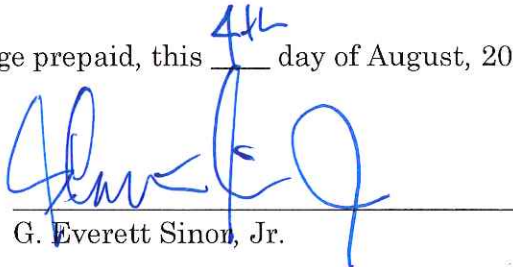 ge prepaid, this 4th day of August, 20
G. Everett Sinor, Jr.